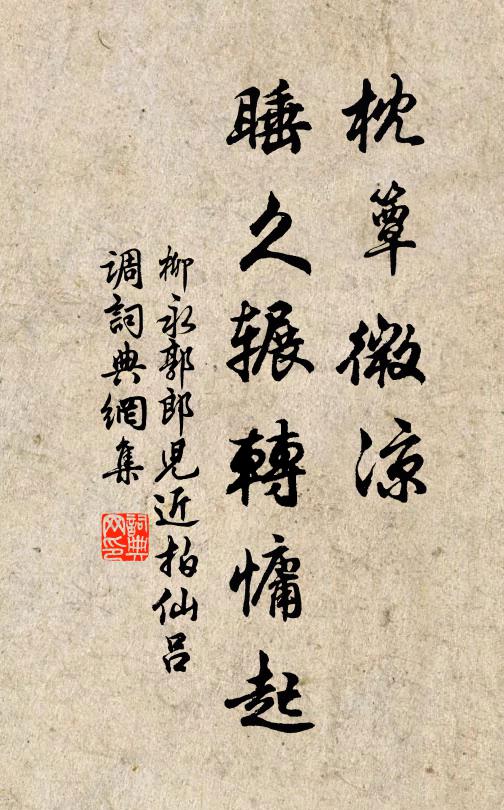 枕簟微涼
睡久辗轉慵起
柳永郭郎兒近拍仙呂
调詞典網集
詞典
网印